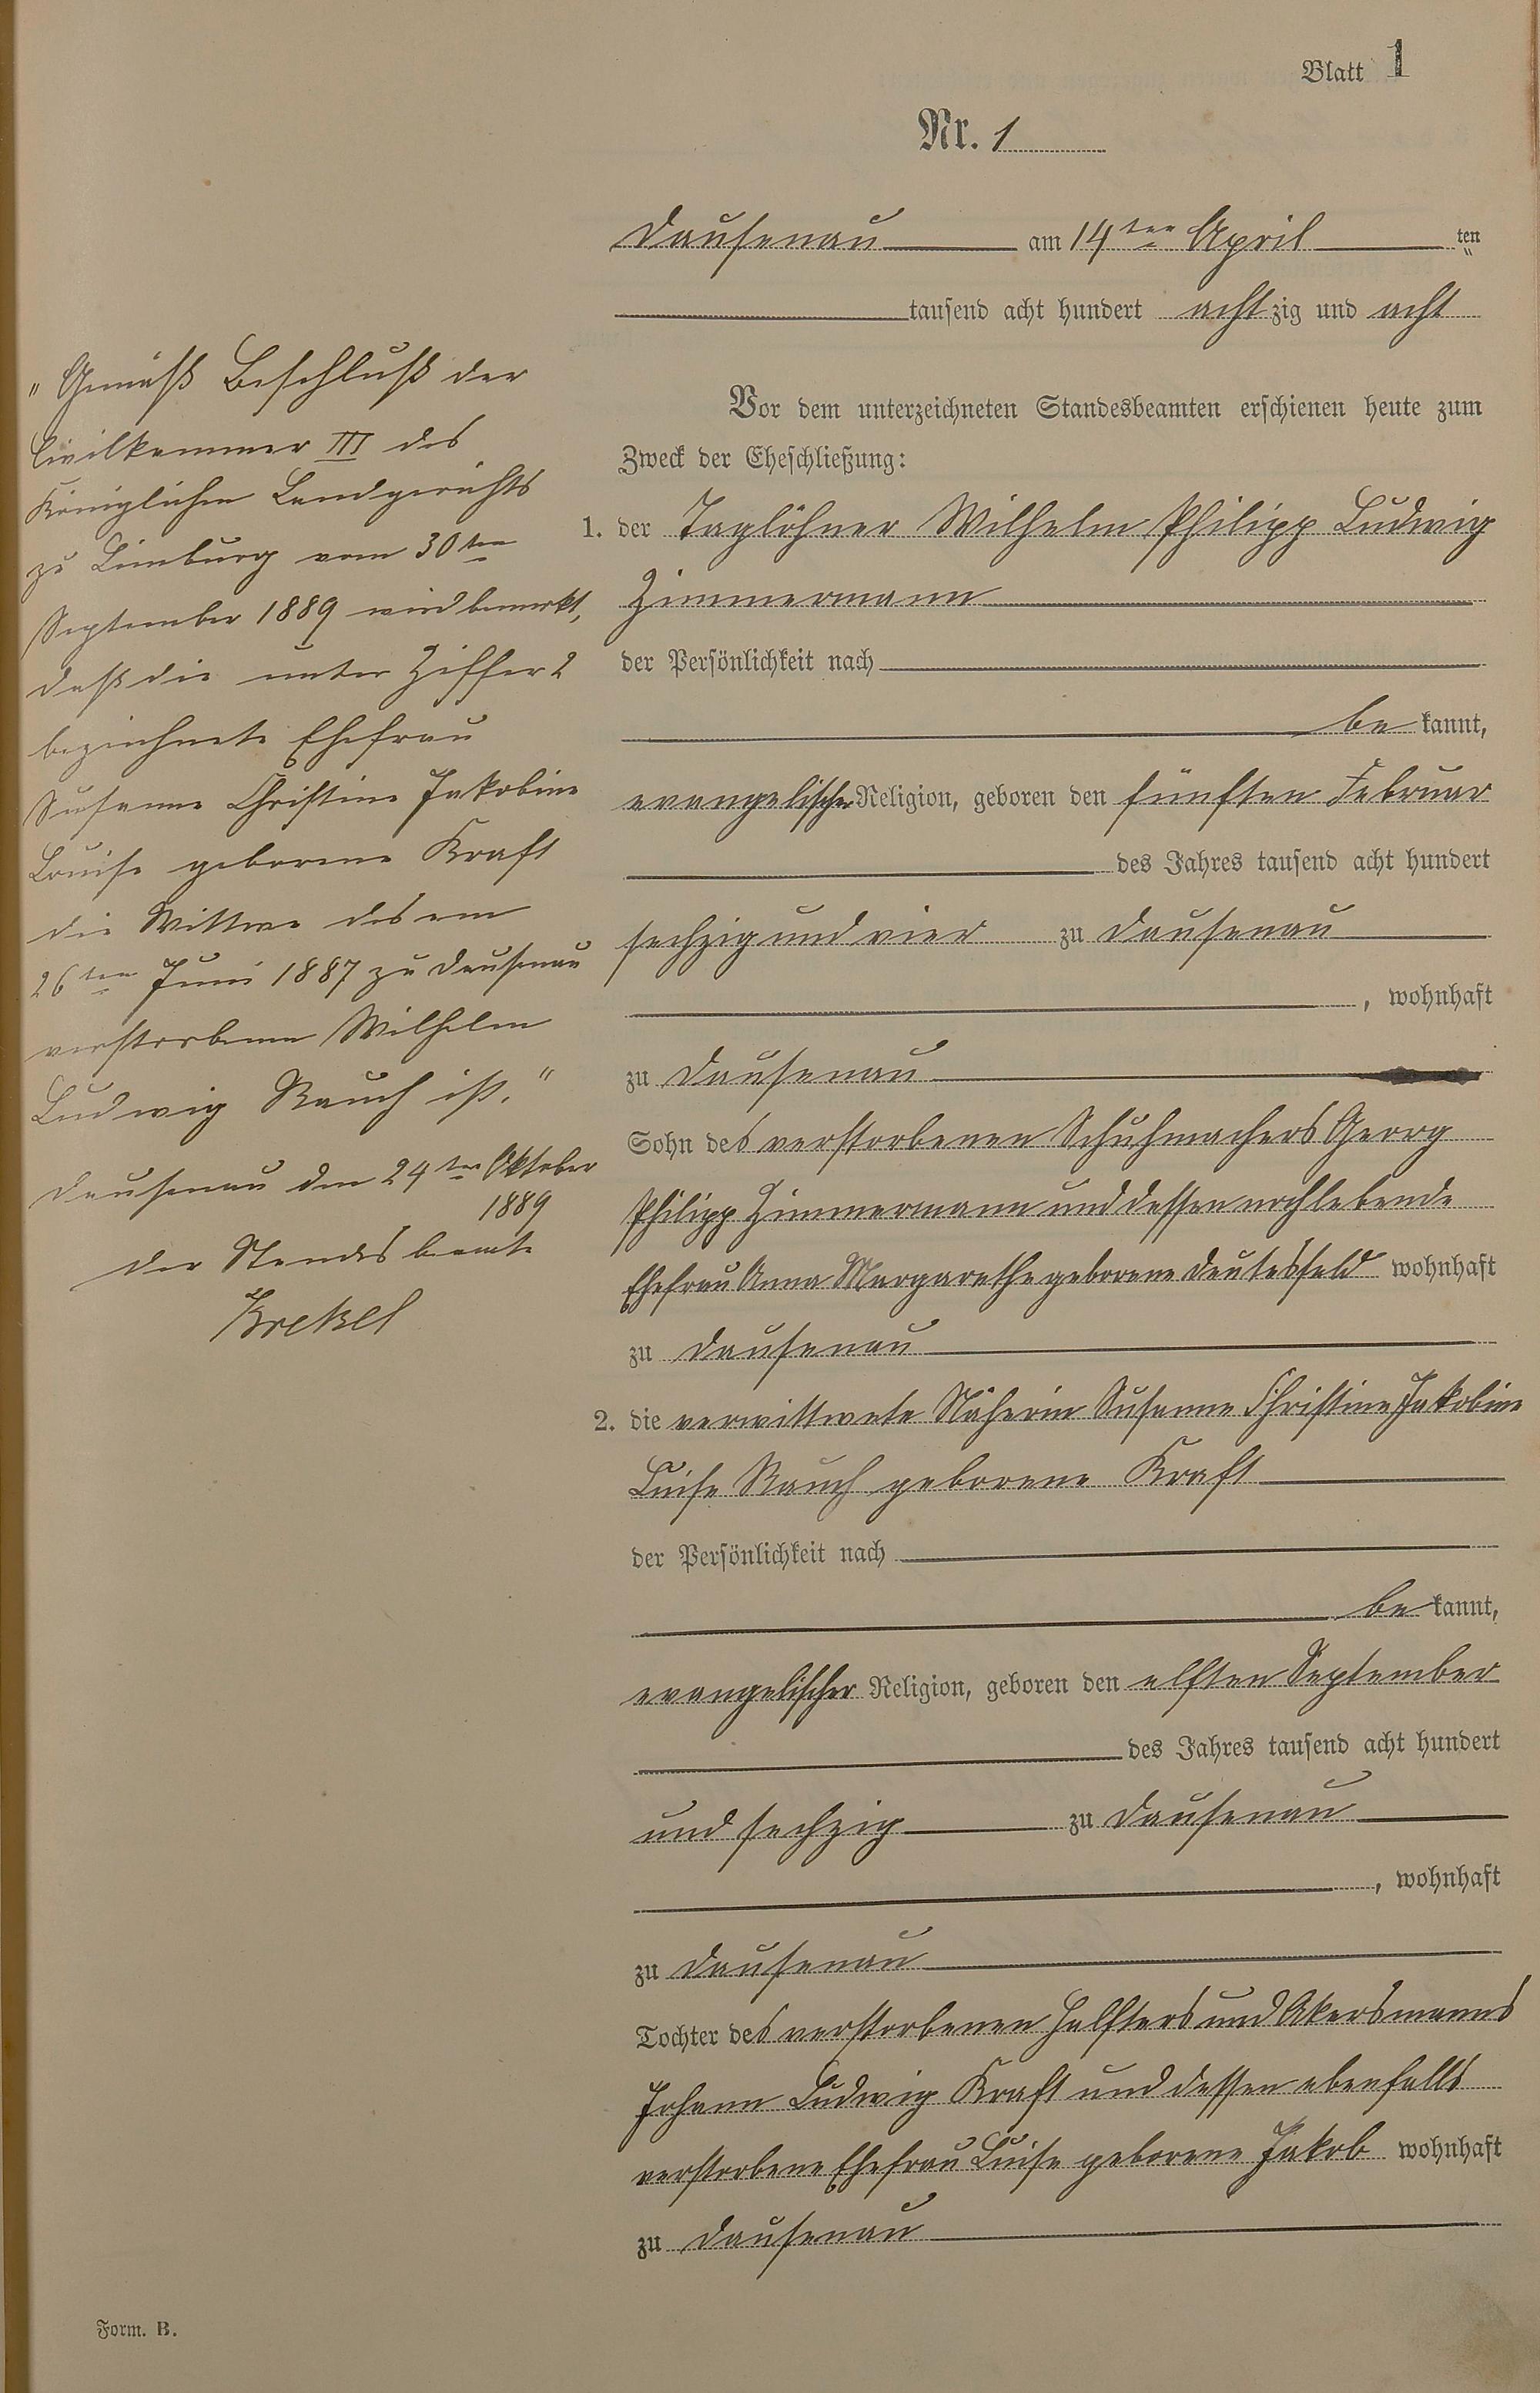 Blatt 1
Nr. 1
Dausenau am 14ten April ten
tausend acht hundert achtzig und acht
Vor dem unterzeichneten Standesbeamten erschienen heute zum
Zweck der Eheschließung:
1. der Taglöhner Wilhelm Philipp Ludwig
Zimmermann
der Persönlichkeit nach
be kannt,
evangelischer Religion, geboren den fünften Februar
des Jahres tausend acht hundert
sechzig und vier zu Dausenau
, wohnhaft
zu Dausenau
Sohn des verstorbenen Schuhmachers Georg
Philipp Zimmermann und dessen noch lebende
Ehefrau Anna Margarethe geborene Deutesfeld wohnhaft
zu Dausenau
2. die verwittwete Näherin Susanne Christine Jakobine
Luise Rauch geborene Kraft
der Persönlichkeit nach
be kannt,
evangelischer Religion, geboren den elften September
des Jahres tausend acht hundert
und sechzig zu Dausenau
, wohnhaft
zu Dausenau
Tochter des verstorbenen Halfters und Akersmanns
Johann Ludwig Kraft und dessen ebenfalls
verstorbene Ehefrau Luise geborene Jakob wohnhaft
zu Dausenau
"Gemäß Beschluß der
Civilkammer III des
Königlichen Landgerichts
zu Limburg vom 30ten
September 1889 wird bemerkt,
daß die unter Ziffer 2
bezeichnete Ehefrau
Susanne Christine Jakobine
Louise geborene Kraft
die Wittwe des am
26ten Juni 1887 zu Dausenau
verstorbenen Wilhelm
Ludwig Rauch ist."
Dausenau den 24ten Oktober
1889
Der Standesbeamte
Krekel
Form. B.